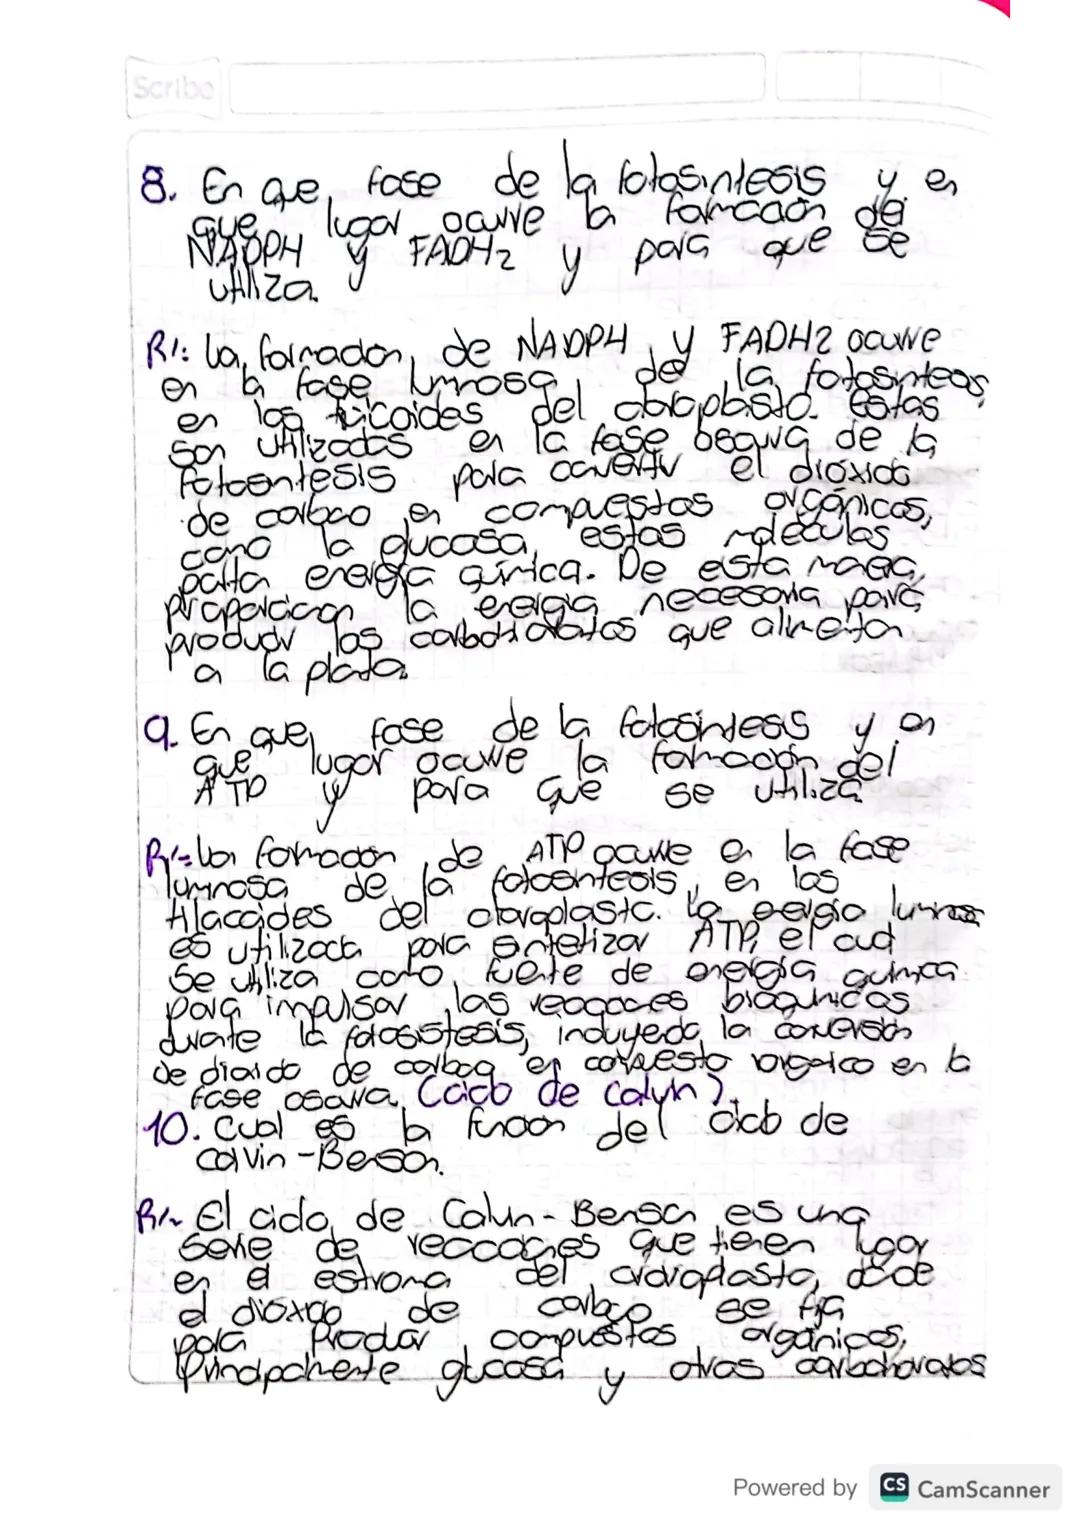 Scribe
8. En que fase de la fotosintesis y en
que lugar ocurre la formacion del
NADPH y FADH2 y para que se
utiliza.
R/: La formacion de NADPH y FADH2 ocurre
en la fase luminosa de la fotosintesis,
en los tilcoides del cloroplasto. Estas
son utilizadas en la fase oscura de la
fotosintesis para convertir el dióxido
de carbono en compuestos orgánicos,
como la glucosa, estas moleculas
portan energía química. De esta manera,
proporcionan la energia necesaria para
producir los carbohidratos que alimentan
a la planta.
9. En que fase de la fotosíntesis y en
que lugar ocurre la formación del
ATP y para que se utiliza
R/- La formacion de ATP ocurre en la fase
luminosa de la fotosintesis, en los
tilacoides del cloroplasto. La energia luminosa
es utilizada para sintetizar ATP, el cual
se utiliza como fuente de energía quimica
para impulsar las reacciones bioquimicas
durante la fotosistesis, incluyendo la conversion
de dioxido de carbono en compuesto organico en la
fase oscura. (ciclo de calvin).
10. Cual es la funcion del ciclo de
calvin-Benson.
R/~ El ciclo de Calvin-Benson es una
serie de reacciones que tienen lugar
en el estroma del cloroplasto, donde
el dióxido de carbono se fija
para producir compuestos orgánicos,
principalmente glucosa y otros carbohidratos
Powered by CS CamScanner